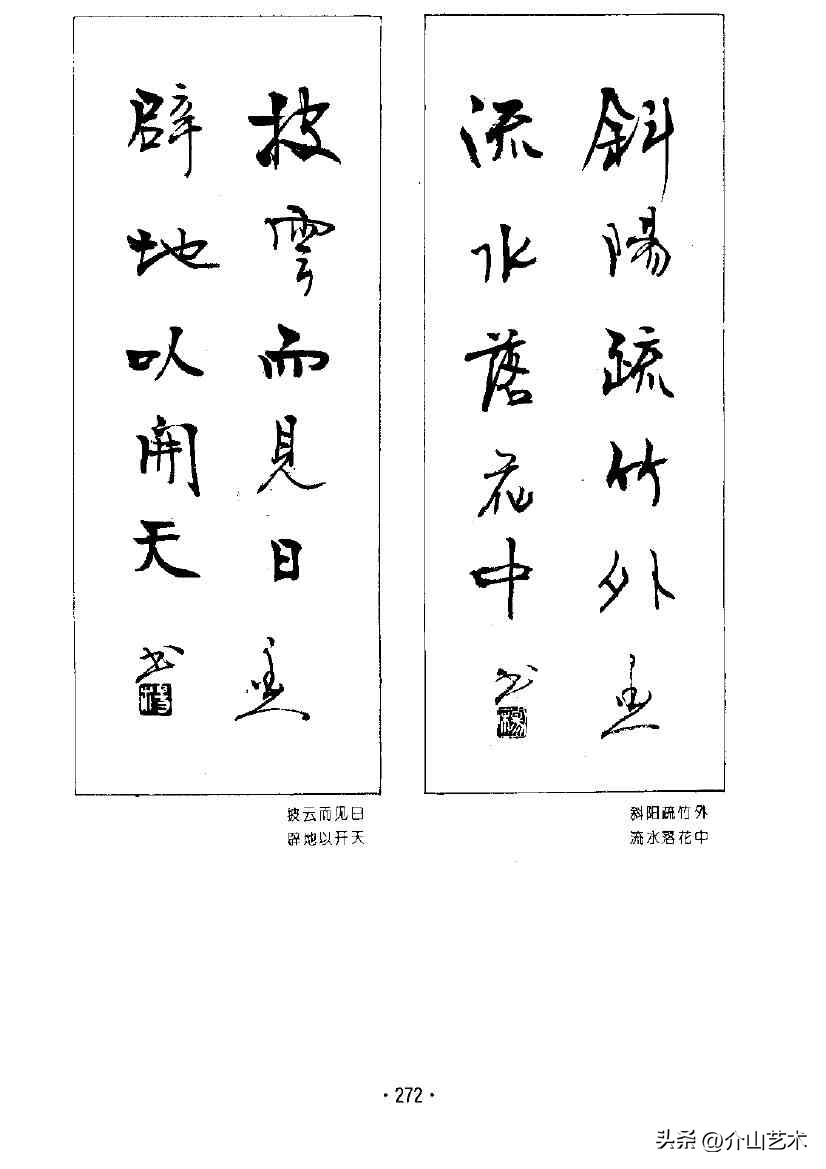 斜陽疏竹外
流水落花中
书
披雲而見日
辟地以開天
书
斜阳疏竹外
流水落花中
披云而见日
辟地以开天
·272·
头条 @介山艺术